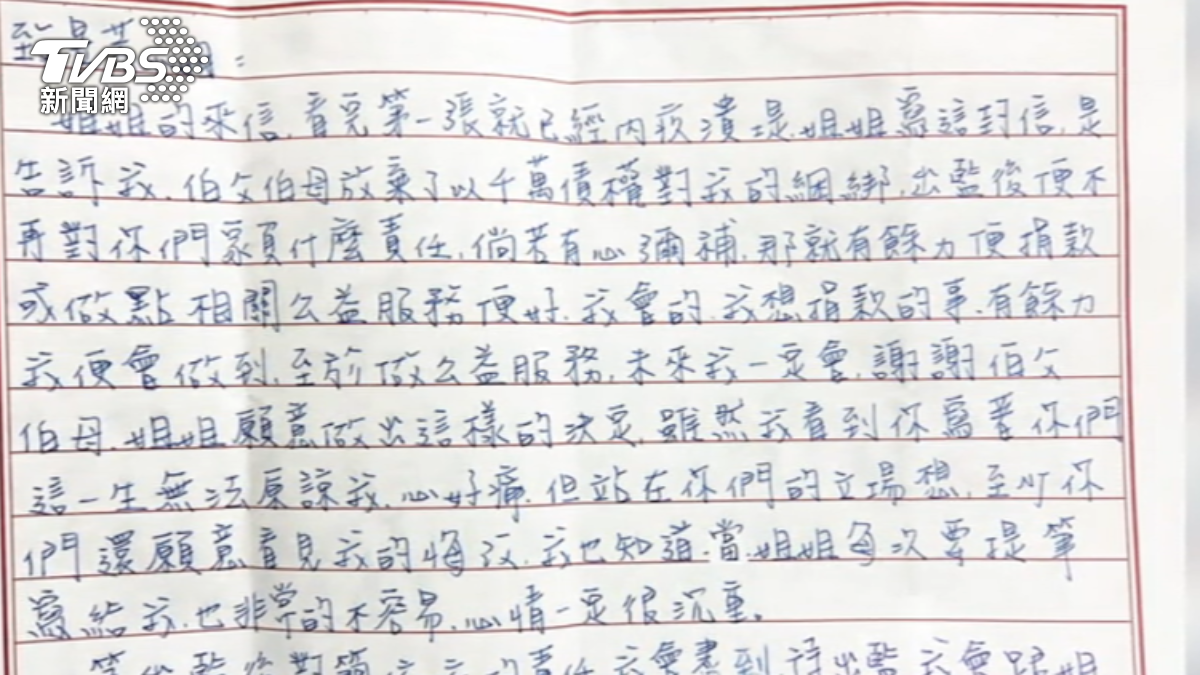 致
TVBS
新聞網
姐姐的來信,看完第一張就已經內疚潰堤.姐姐寫這封信,是
告訴我.伯父伯母放棄了以千萬債權對我的綑綁,出監後便不
再對你們家負什麼責任,倘若有心彌補.那就有餘力便捐款
或做點相關公益服務便好.我會的.我想捐款的事.有餘力
我便會做到.至於做公益服務.未來我一定會.謝謝伯父
伯母.姐姐願意做出這樣的決定.雖然我看到你寫著你們
這一生無法原諒我.心好痛.但站在你們的立場想.至少你
們還願意看見我的悔改.我也知道.當.姐姐每次要提筆
寫給我.也非常的不容易.心情一定很沉重。
等出監後對 的責任我會盡到.待出監我會跟姐